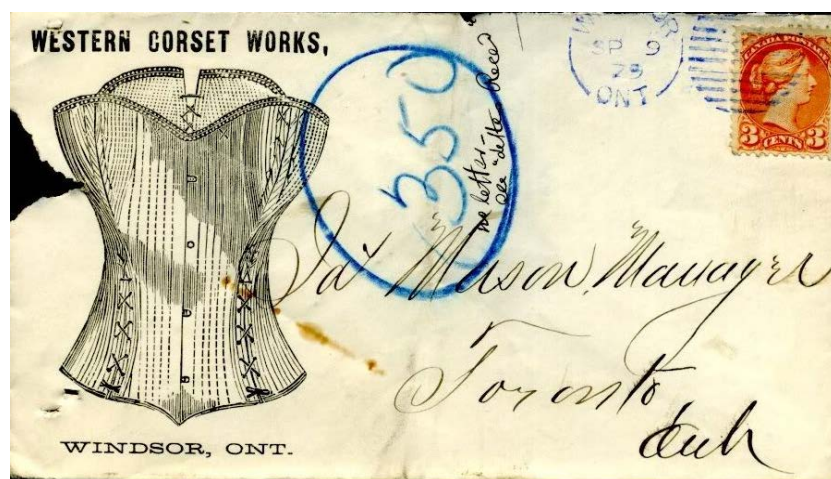 WESTERN CORSET WORKS,
WINDSOR, ONT.
350
no letter
Recd
SP 9
ONT
CANADA POSTAGE
3 CENTS 3
Jas Mason, Manager
Toronto